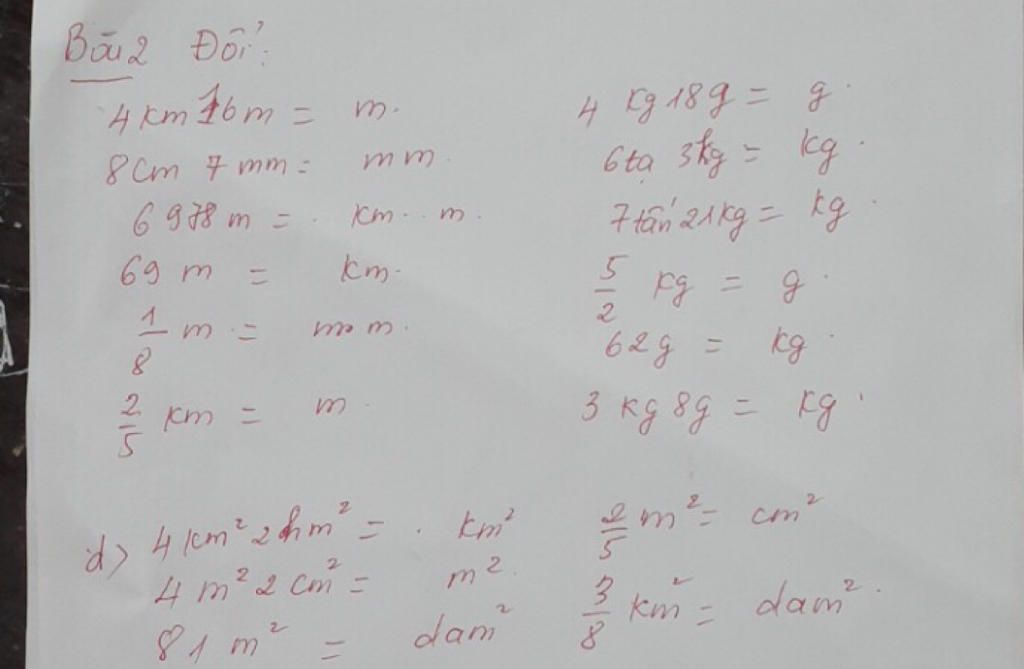 Bài 2 Đổi:
4 km 16 m = m.
8 cm 7 mm = mm.
6978 m = . km . . m.
69 m = km.
1/8 m = mm.
2/5 km = m.
4 kg 18 g = g.
6 tạ 3 kg = kg.
7 tấn 21 kg = kg.
5/2 kg = g.
62 g = kg.
3 kg 8 g = kg.
d) 4 km² 2 hm² = . km²
4 m² 2 cm² = m².
81 m² = dam²
2/5 m² = cm²
3/8 km² = dam².